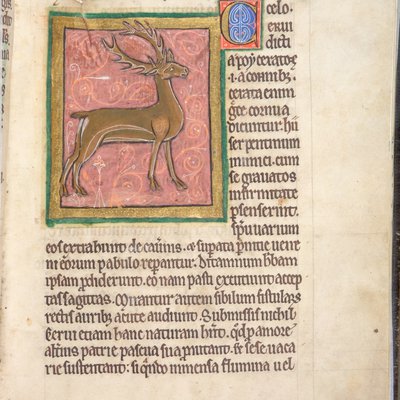 C
erui
dicti
cornibz
cerata enim
cornua
dicuntur. hii
serpentium
inimici. cum
se grauatos
infirmitate
psenserint.
spu narium
eos extrahunt de cauernis. & supata pnitie uene
ni eorum pabulo reperantur. Dictamnum hbam
ipsam pdiderunt. eo nam pasti excutiunt accep
tas sagittas. Mirantur autem sibilum fistularz
rectis auribz acute audiunt. Submissis nichil.
Cerui etiam hanc naturam hnt. qd p amore
alterius patrie pascua sua mutant. & se se uaca
rie sustentant: si qndo inmensa flumina uel